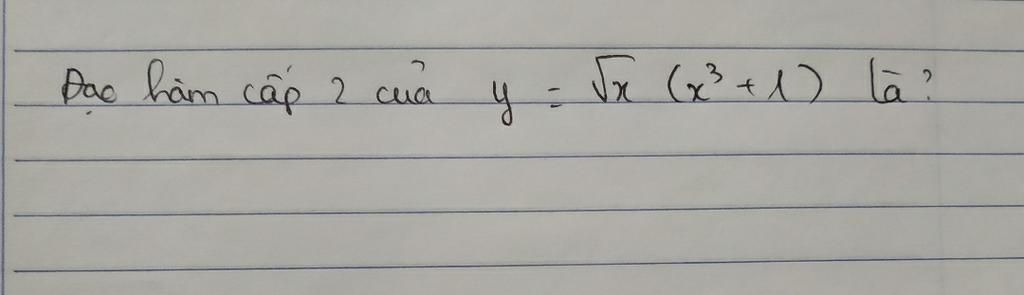 Đạo hàm cấp 2 của y = √x (x³ + 1) là?